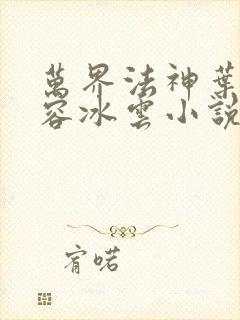 萬界法神葉
容冰雲小說
宥喏